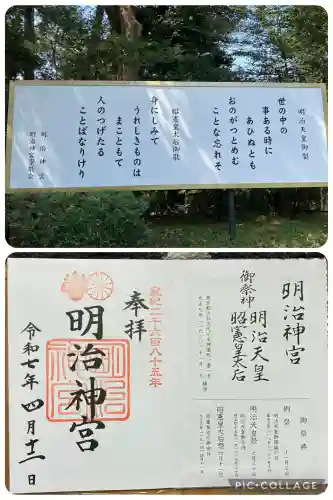 明治天皇御製
世の中の
事ある時に
あひぬとも
おのがつとめむ
ことな忘れそ
昭憲皇太后御歌
身にしみて
うれしきものは
まこともて
人のつげたる
ことばなりけり
明治神宮
明治神宮崇敬会
明治神宮
御祭神
明治天皇
昭憲皇太后
御祭典
例祭
明治天皇祭
昭憲皇太后祭
皇紀二千六百八十五年
奉拝
明治神宮
令和七年四月十二日
PIC•COLLAGE